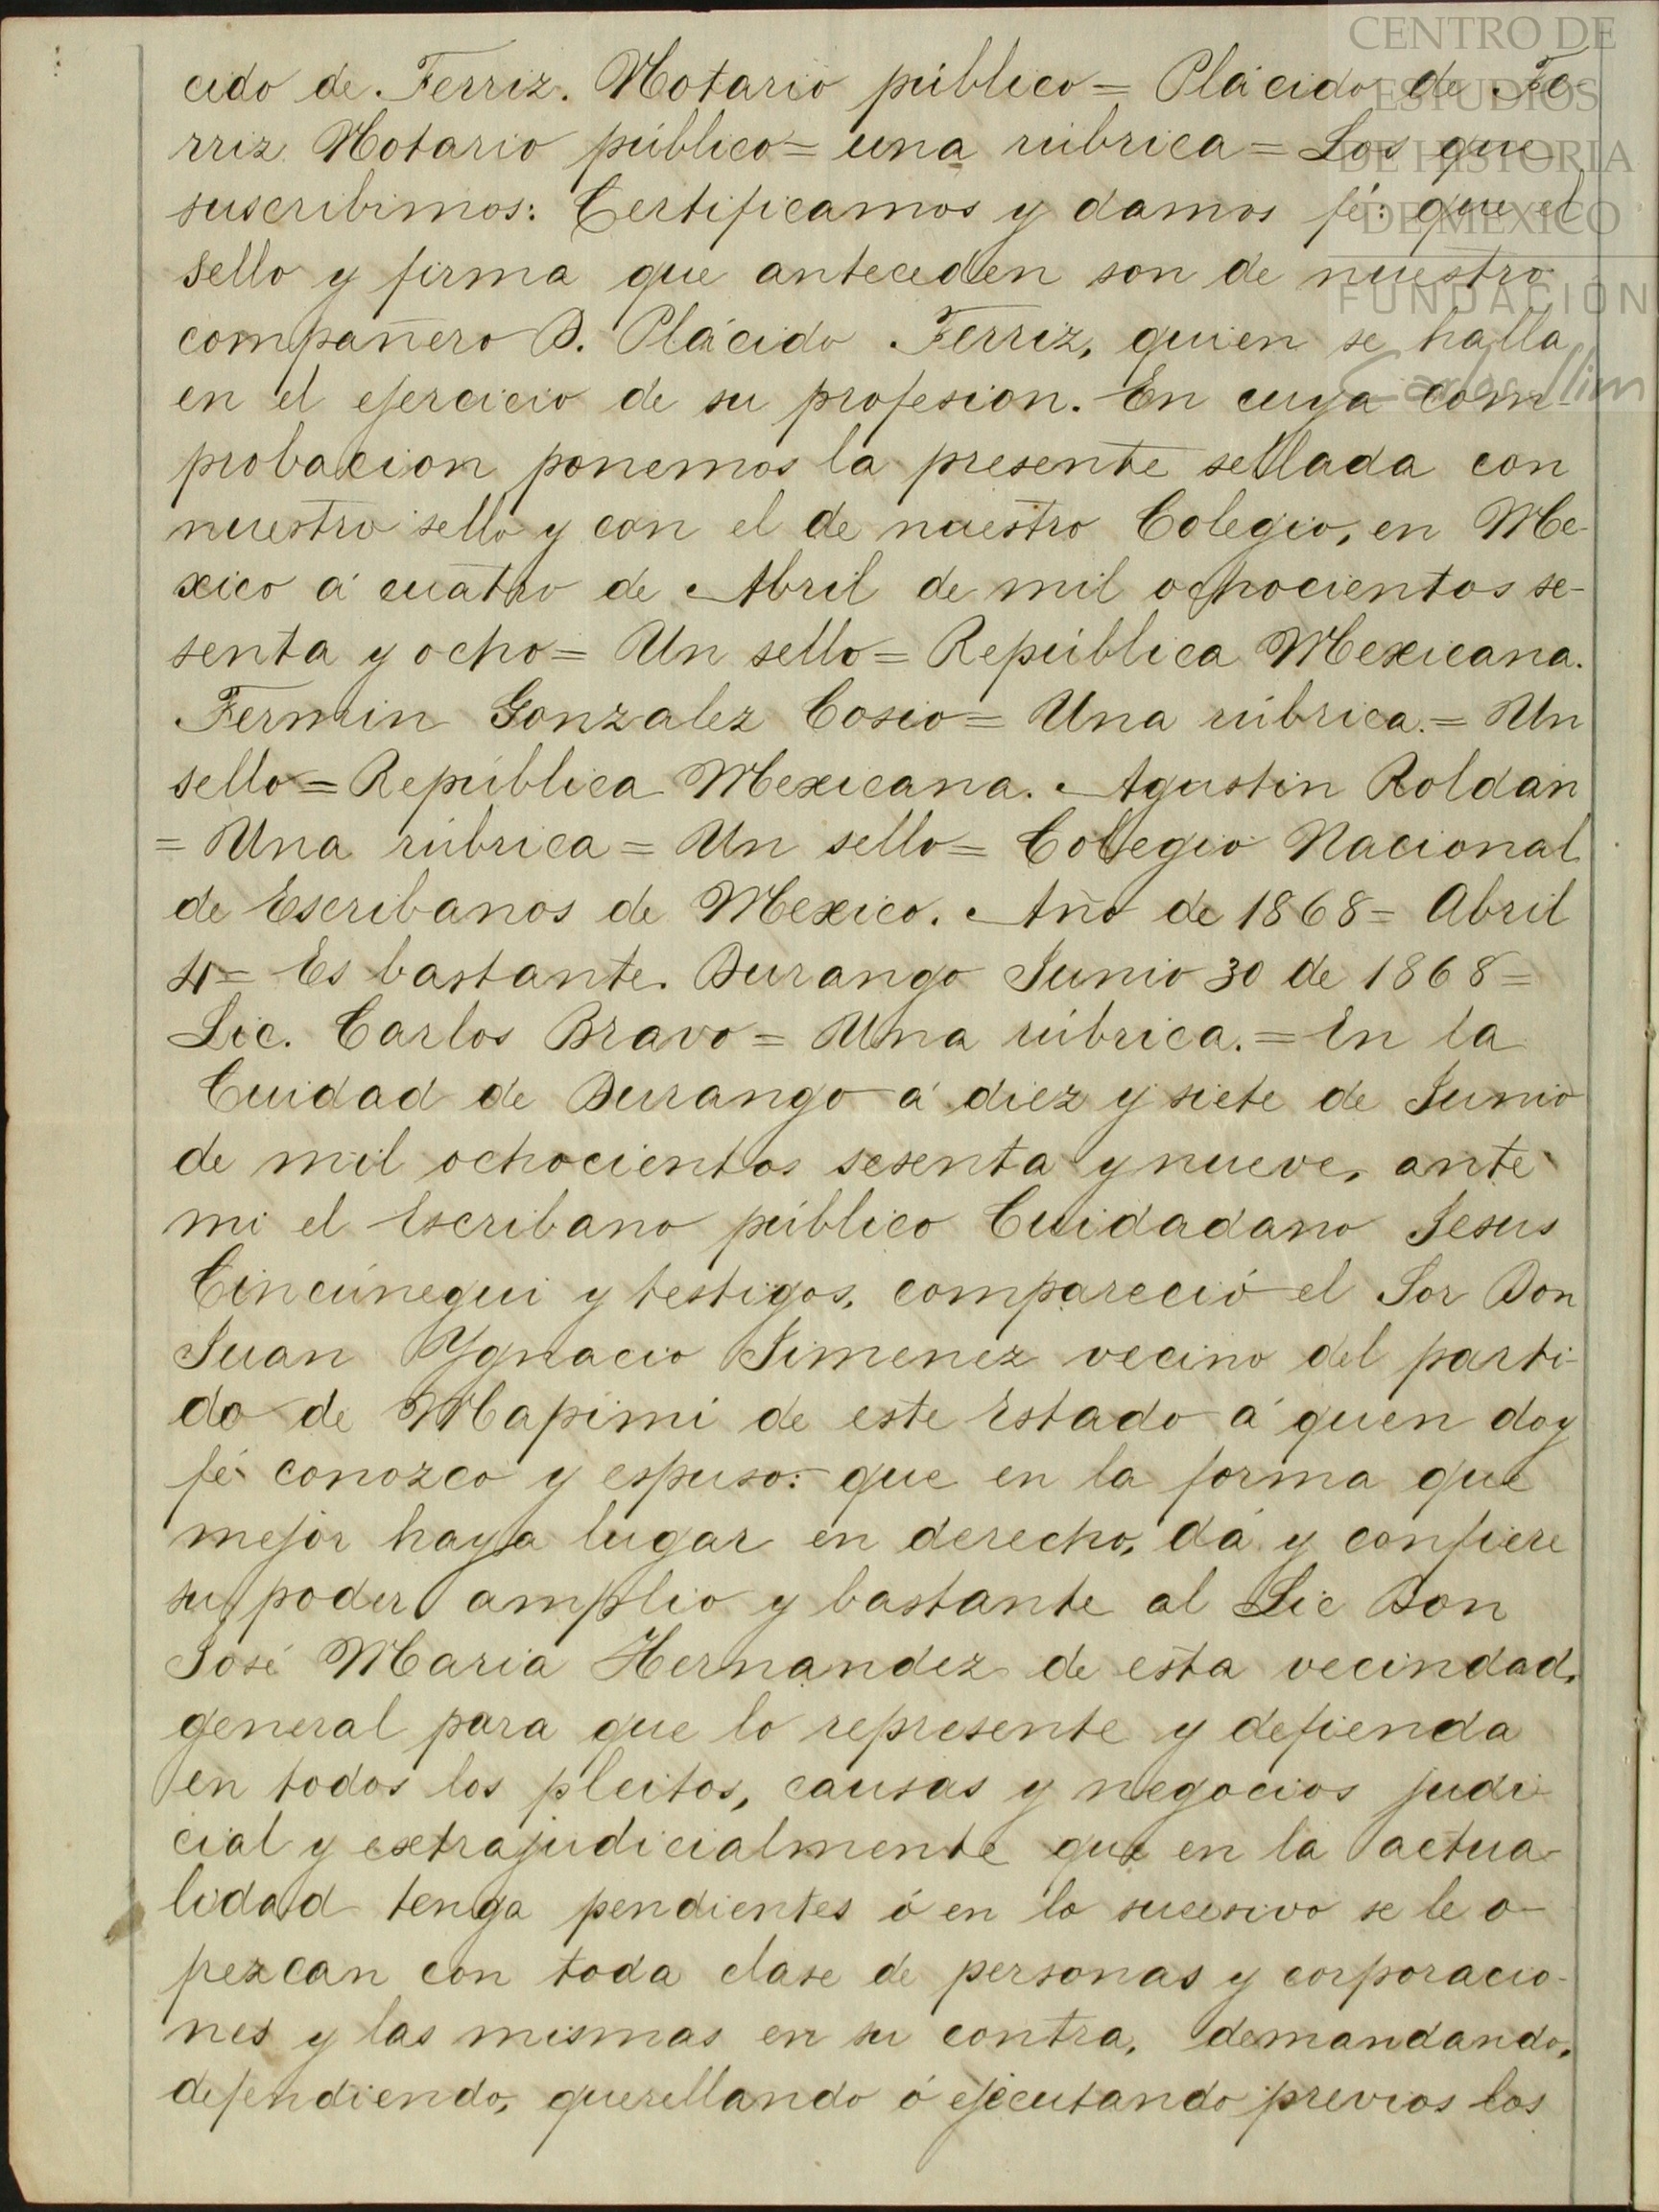 CENTRO DE
ESTUDIOS
DE HISTORIA
DE MEXICO
FUNDACIÓN
Carlos Slim
cido de Ferriz. Notario público = Plácido de Fe-
rriz Notario público = una rúbrica = Los que
suscribimos: Certificamos y damos fé: que el
sello y firma que anteceden son de nuestro
compañero D. Plácido Ferriz, quien se halla
en el ejercicio de su profesion. En cuya com-
probacion ponemos la presente sellada con
nuestro sello y con el de nuestro Colegio, en Me-
xico á cuatro de Abril de mil ochocientos se-
senta y ocho = Un sello = República Mexicana.
Fermin Gonzalez Cosio = Una rúbrica. = Un
sello = República Mexicana. Agustin Roldan
= Una rúbrica = Un sello = Colegio Nacional
de Escribanos de Mexico. Año de 1868 = Abril
4 = Es bastante. Durango Junio 30 de 1868 =
Lic. Carlos Bravo = Una rúbrica. = En la
Cuidad de Durango á diez y siete de Junio
de mil ochocientos sesenta y nueve, ante
mi el Escribano público Cuidadano Jesus
Cincúnegui y testigos, compareció el Sor Don
Juan Ygnacio Jimenez vecino del parti-
do de Mapimi de este Estado á quen doy
fé conozco y espuso: que en la forma que
mejor haya lugar en derecho, dá y confiere
su poder amplio y bastante al Lic Don
José Maria Hernandez de esta vecindad,
general para que lo represente y defienda
en todos los pleitos, causas y negocios judi-
cial y extrajudicialmente que en la actua-
lidad tenga pendientes ó en lo sucesivo se le o-
frezcan con toda clase de personas y corporacio-
nes y las mismas en su contra, demandando,
defendiendo, querellando ó ejecutando previos los